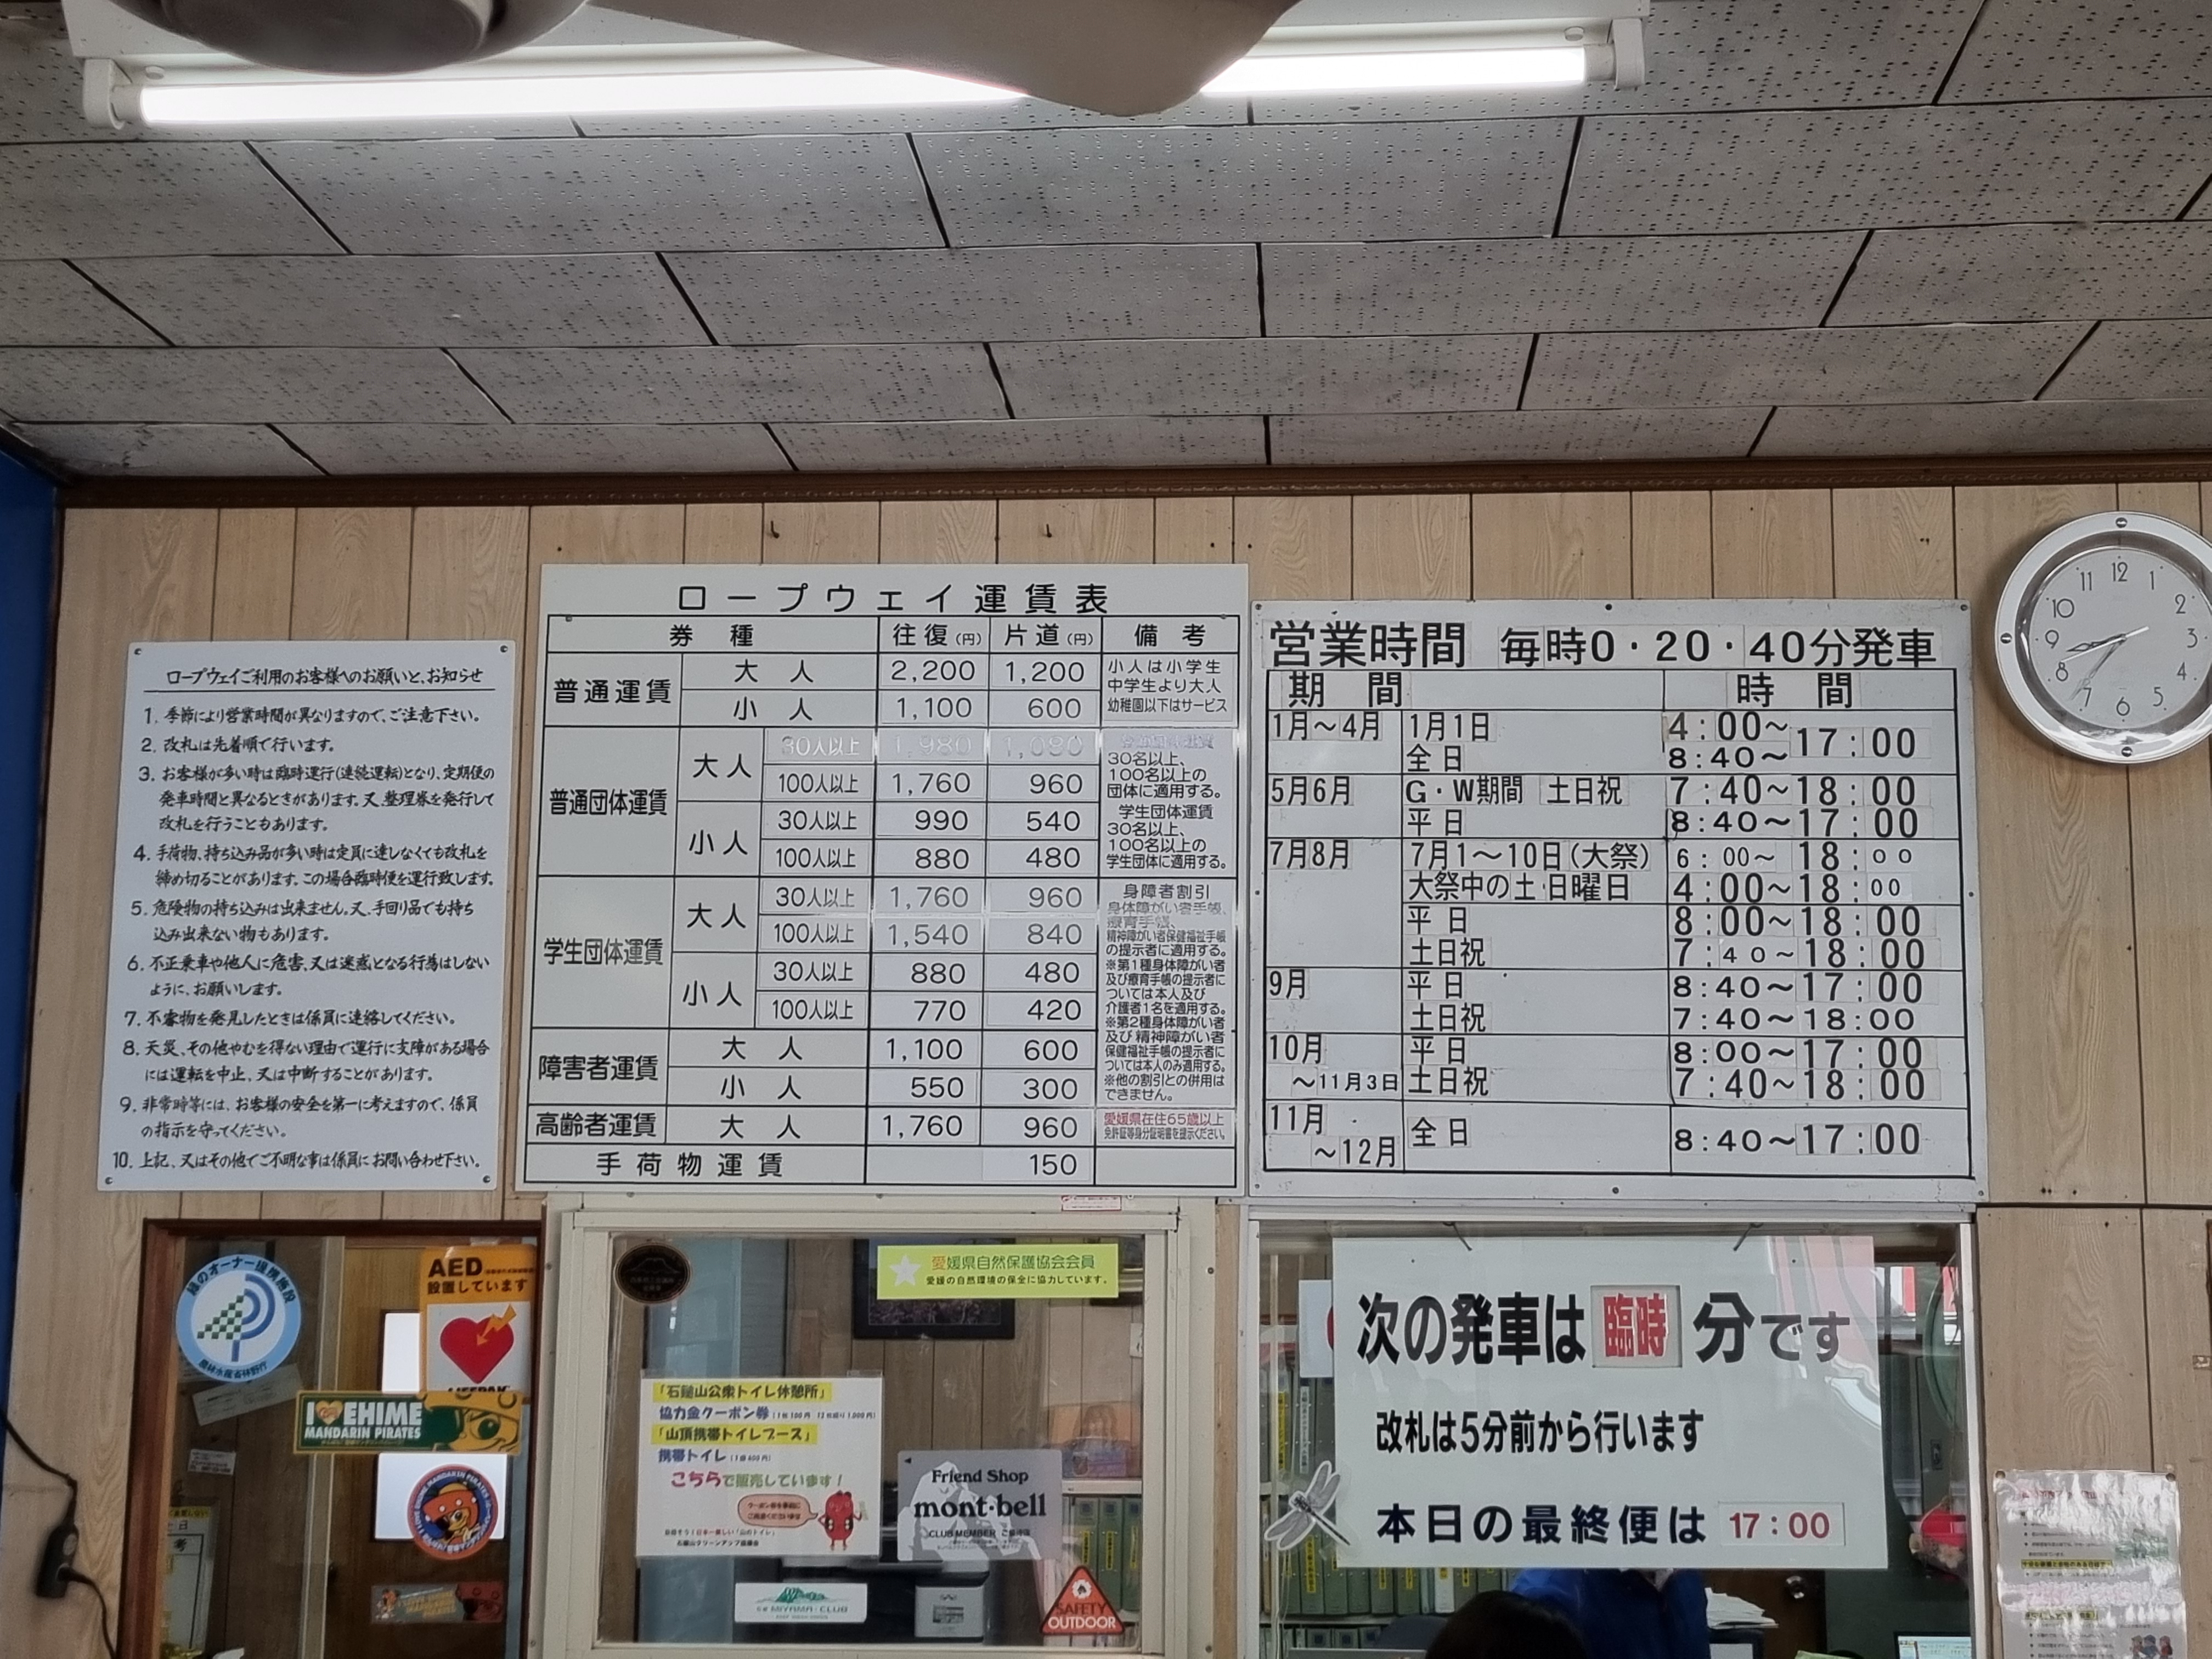 ロープウェイご利用のお客様へのお願いと、お知らせ
1. 季節により営業時間が異なりますので、ご注意下さい。
2. 改札は先着順で行います。
3. お客様が多い時は臨時運行(連続運転)となり、定期便の
発車時間と異なるときがあります。又、整理券を発行して
改札を行うこともあります。
4. 手荷物、持ち込み品が多い時は定員に達しなくても改札を
締め切ることがあります。この場合臨時便を運行致します。
5. 危険物の持ち込みは出来ません。又、手回り品でも持ち
込み出来ない物もあります。
6. 不正乗車や他人に危害、又は迷惑となる行為はしない
ように、お願いします。
7. 不審物を発見したときは係員に連絡してください。
8. 天災、その他やむを得ない理由で運行に支障がある場合
には運転を中止、又は中断することがあります。
9. 非常時等には、お客様の安全を第一に考えますので、係員
の指示を守ってください。
10. 上記、又はその他でご不明な事は係員にお問い合わせ下さい。
ロープウェイ運賃表
券種 往復(円) 片道(円) 備考
普通運賃 大人 2,200 1,200
小人 1,100 600
小人は小学生
中学生より大人
幼稚園以下はサービス
普通団体運賃 大人 30人以上 1,980 1,080
100人以上 1,760 960
小人 30人以上 990 540
100人以上 880 480
30名以上、
100名以上の
団体に適用する。
学生団体運賃
30名以上、
100名以上の
学生団体に適用する。
学生団体運賃 大人 30人以上 1,760 960
100人以上 1,540 840
小人 30人以上 880 480
100人以上 770 420
障害者運賃 大人 1,100 600
小人 550 300
身障者割引
身体障がい者手帳、
療育手帳、
精神障がい者保健福祉手帳
の提示者に適用する。
※第1種身体障がい者
及び療育手帳の提示者に
ついては本人及び
介護者1名を適用する。
※第2種身体障がい者
及び精神障がい者
保健福祉手帳の提示者に
ついては本人のみ適用する。
※他の割引との併用は
できません。
高齢者運賃 大人 1,760 960
愛媛県在住65歳以上
免許証等身分証明書を提示ください。
手荷物運賃 150
営業時間 毎時0・20・40分発車
期間 時間
1月~4月 1月1日 4:00~
全日 8:40~ 17:00
5月6月 G・W期間 土日祝 7:40~18:00
平日 8:40~17:00
7月8月 7月1~10日(大祭) 6:00~18:00
大祭中の土・日曜日 4:00~18:00
平日 8:00~18:00
土日祝 7:40~18:00
9月 平日 8:40~17:00
土日祝 7:40~18:00
10月 平日 8:00~17:00
~11月3日 土日祝 7:40~18:00
11月
~12月 全日 8:40~17:00
12 1 2 3 4 5 6 7 8 9 10 11
緑のオーナー提携施設
農林水産省林野庁
AED
設置しています
I EHIME
MANDARIN PIRATES
愛媛県自然保護協会会員
愛媛の自然環境の保全に協力しています。
「石鎚山公衆トイレ休憩所」
協力金クーポン券
「山頂携帯トイレブース」
携帯トイレ
こちらで販売しています!
石鎚山クリーンアップ協議会
Friend Shop
mont・bell
CLUB MEMBER
MIYAMA CLUB
SAFETY
OUTDOOR
次の発車は 臨時 分です
改札は5分前から行います
本日の最終便は 17:00